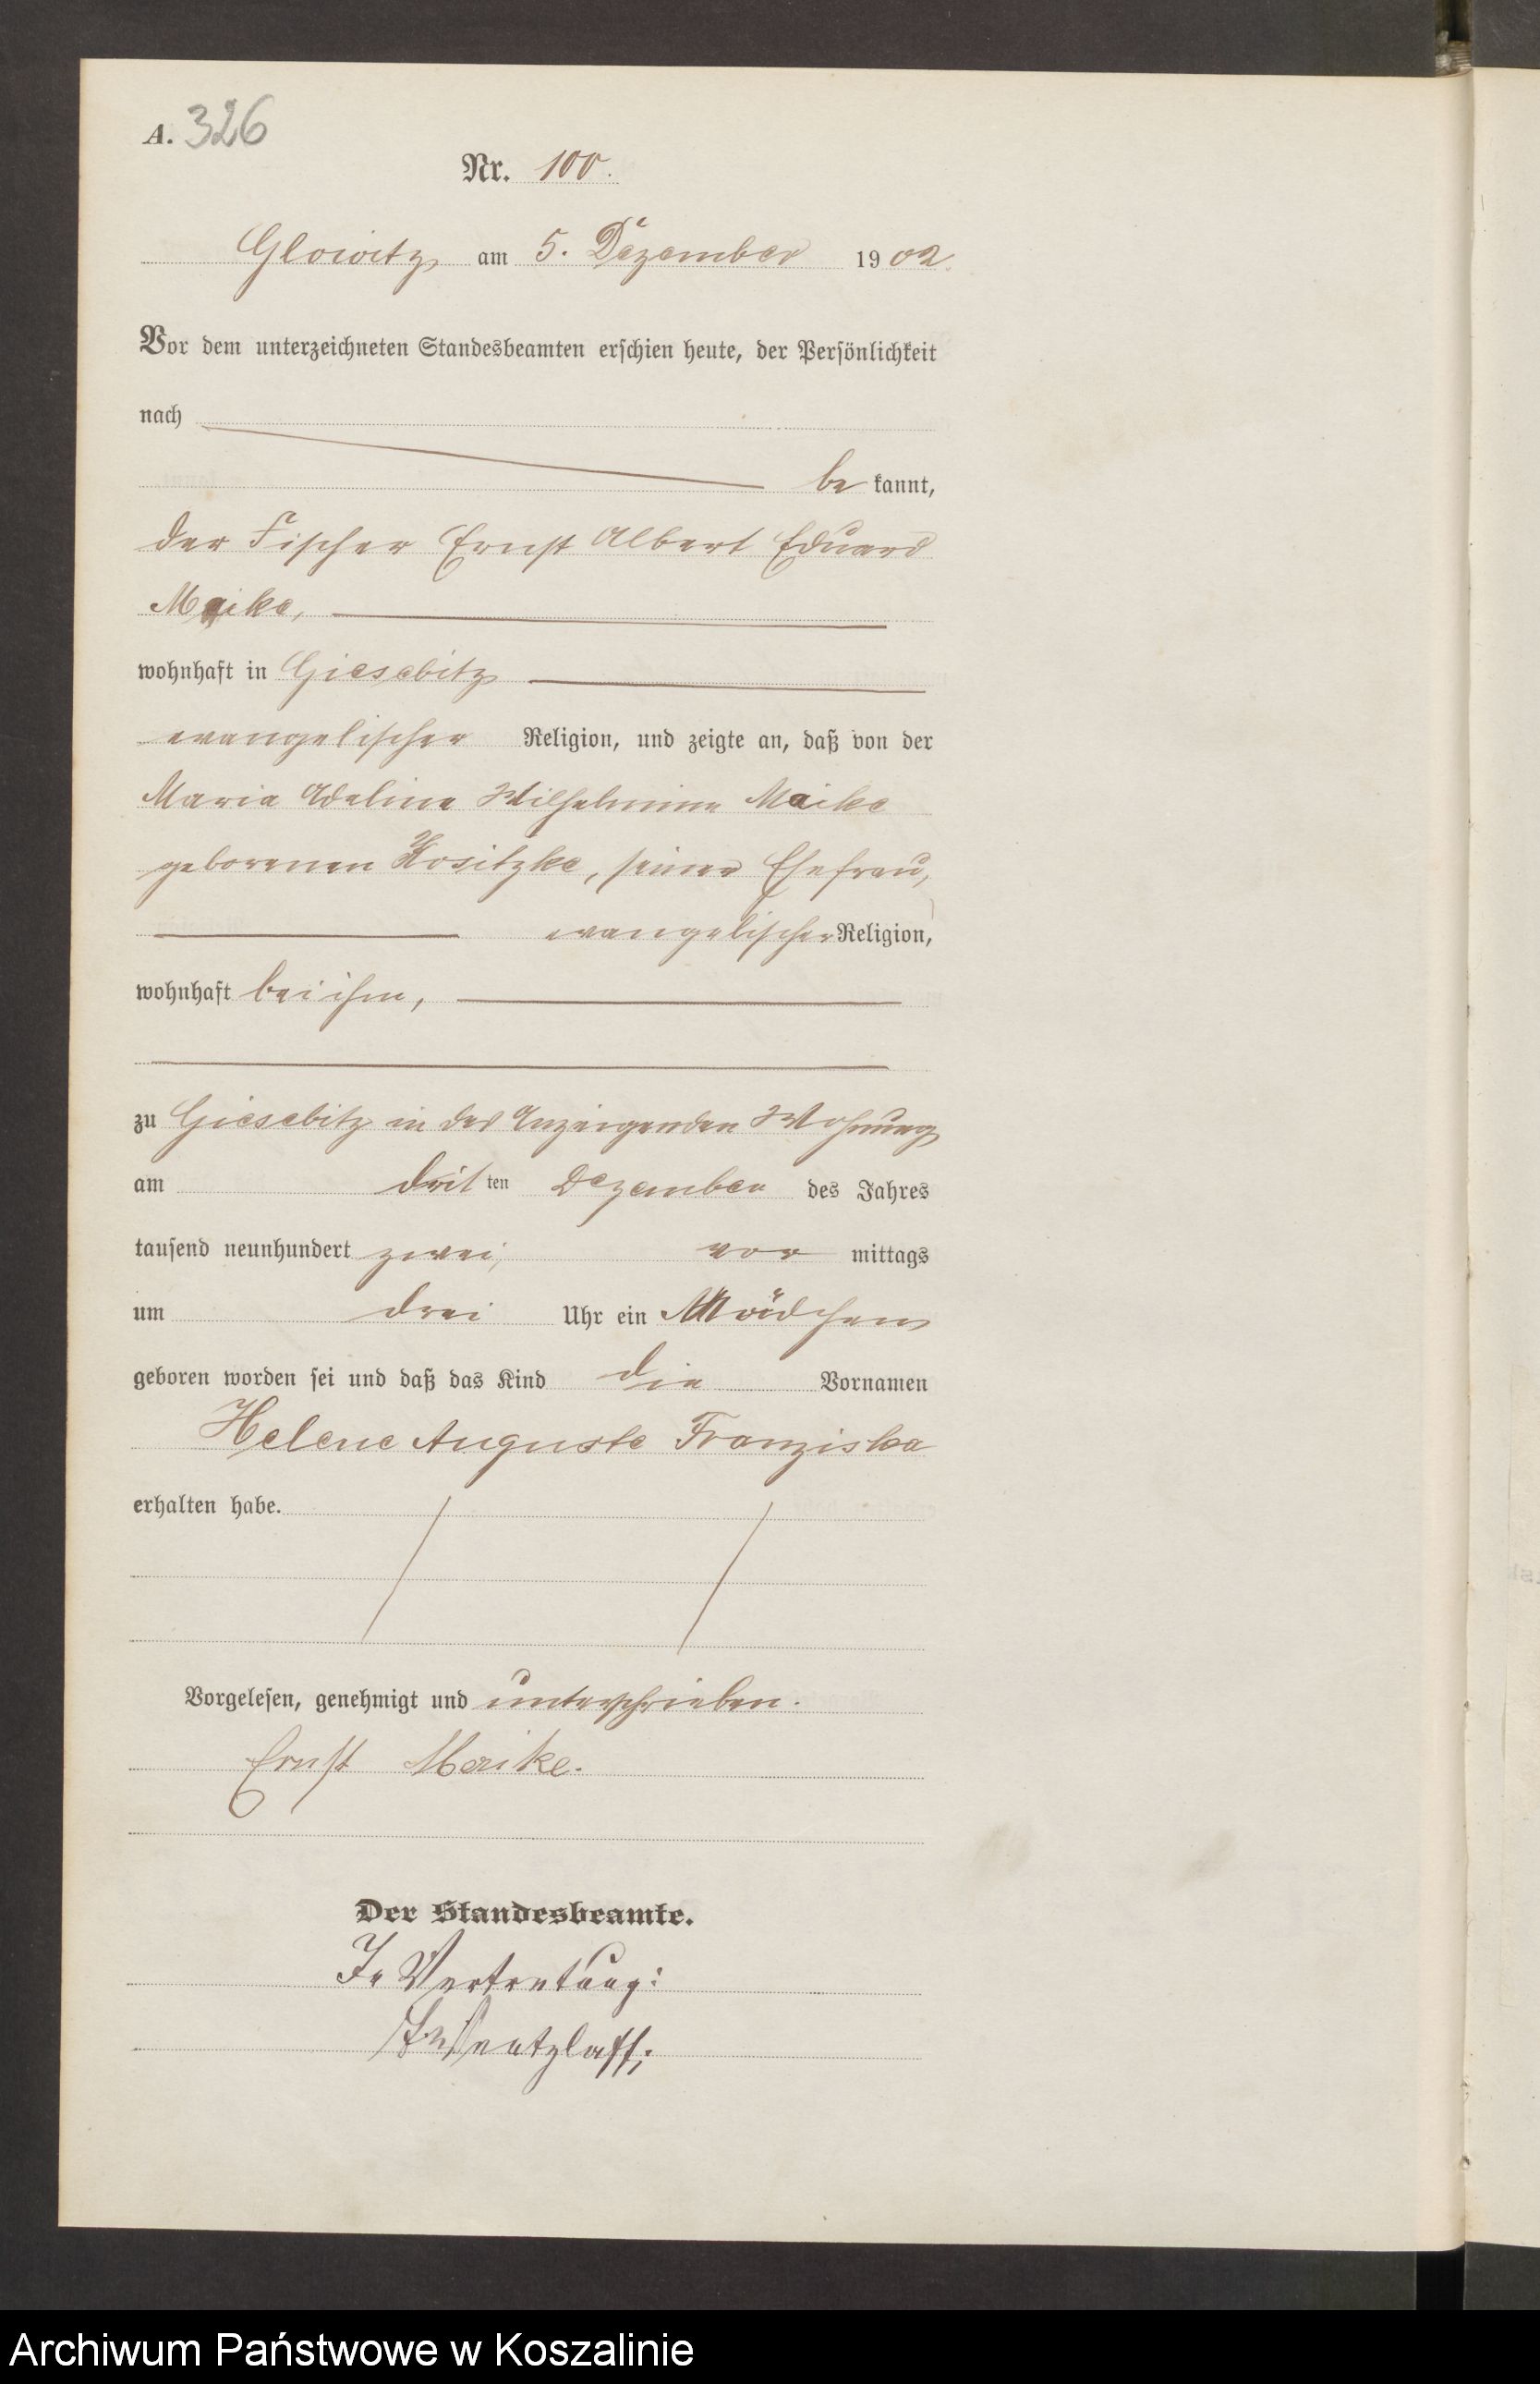 A. 326
Nr. 100.
Glowitz, am 5. Dezember 1902.
Vor dem unterzeichneten Standesbeamten erschien heute, der Persönlichkeit
nach
be kannt,
der Fischer Ernst Albert Eduard
Maike,
wohnhaft in Giesebitz
evangelischer Religion, und zeigte an, daß von der
Maria Adeline Wilhelmine Maike
geborenen Kositzke, seiner Ehefrau,
evangelischer Religion,
wohnhaft bei ihm,
zu Giesebitz in des Anzeigenden Wohnung
am dritten Dezember des Jahres
tausend neunhundert zwei, vor mittags
um drei Uhr ein Mädchen
geboren worden sei und daß das Kind die Vornamen
Helene Auguste Franziska
erhalten habe.
Vorgelesen, genehmigt und unterschrieben.
Ernst Maike.
Der Standesbeamte.
In Vertretung:
Archiwum Państwowe w Koszalinie